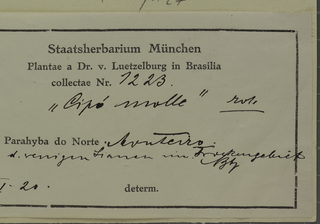 Staatsherbarium München
Plantae a Dr. v. Luetzelburg in Brasilia
collectae Nr. 1223.
„Cipó molle" rot.
Parahyba do Norte, Monteiro
d. wenigen Lianen im Trockengebiet
20. determ.